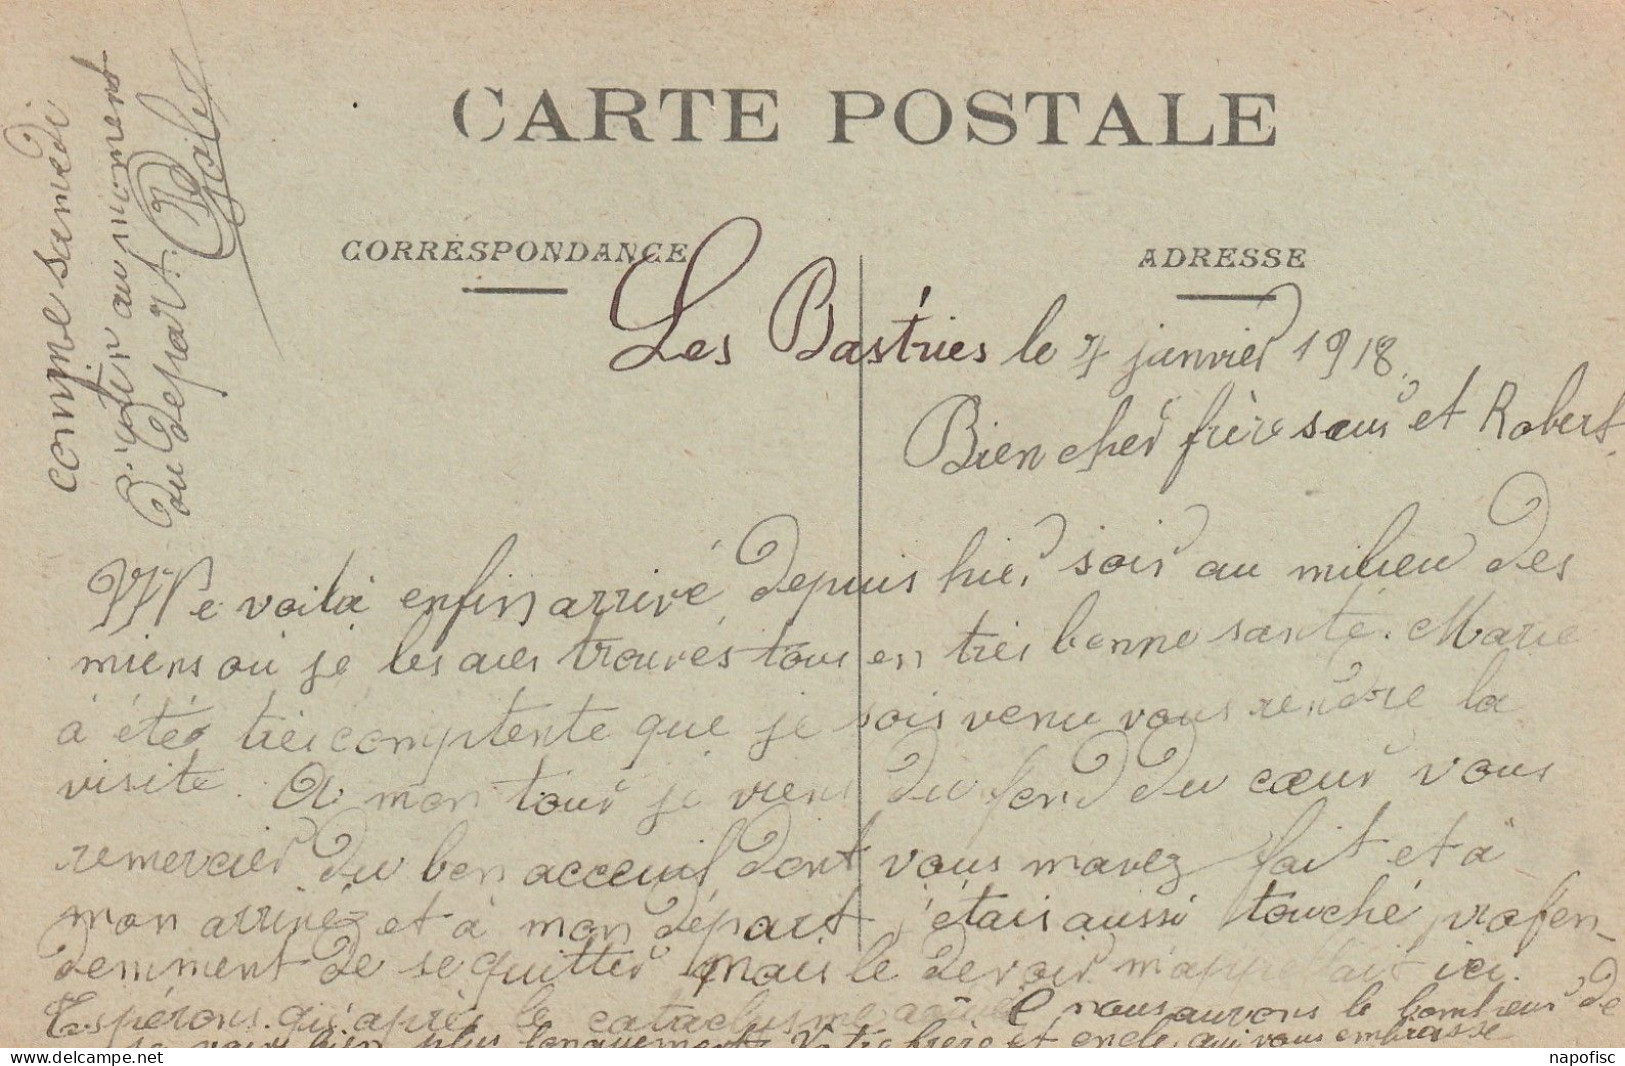 CARTE POSTALE
CORRESPONDANCE
ADRESSE
Les Bastries le 7 janvier 1918.
Bien cher frère sœur et Robert
Me voilà enfin arrivé depuis hier soir au milieu des
miens où je les aies trouvés tous en très bonne santé. Marie
à étés très comptente que je sois venu vous rendre la
visite. A mon tour je viens du fond du cœur vous
remercier du bon acceuil dont vous mavez fait et à
mon arrivez et à mon départ j'étais aussi touché profon-
demment de se quitter mais le devoir m'appelait ici.
Espérons qu'après le cataclysme nous aurons le bonheur de
se voir bien plus longuement Votre frère et oncle qui vous embrasse
comme samedi
au moment
du départ.
napofisc
www.delcampe.net